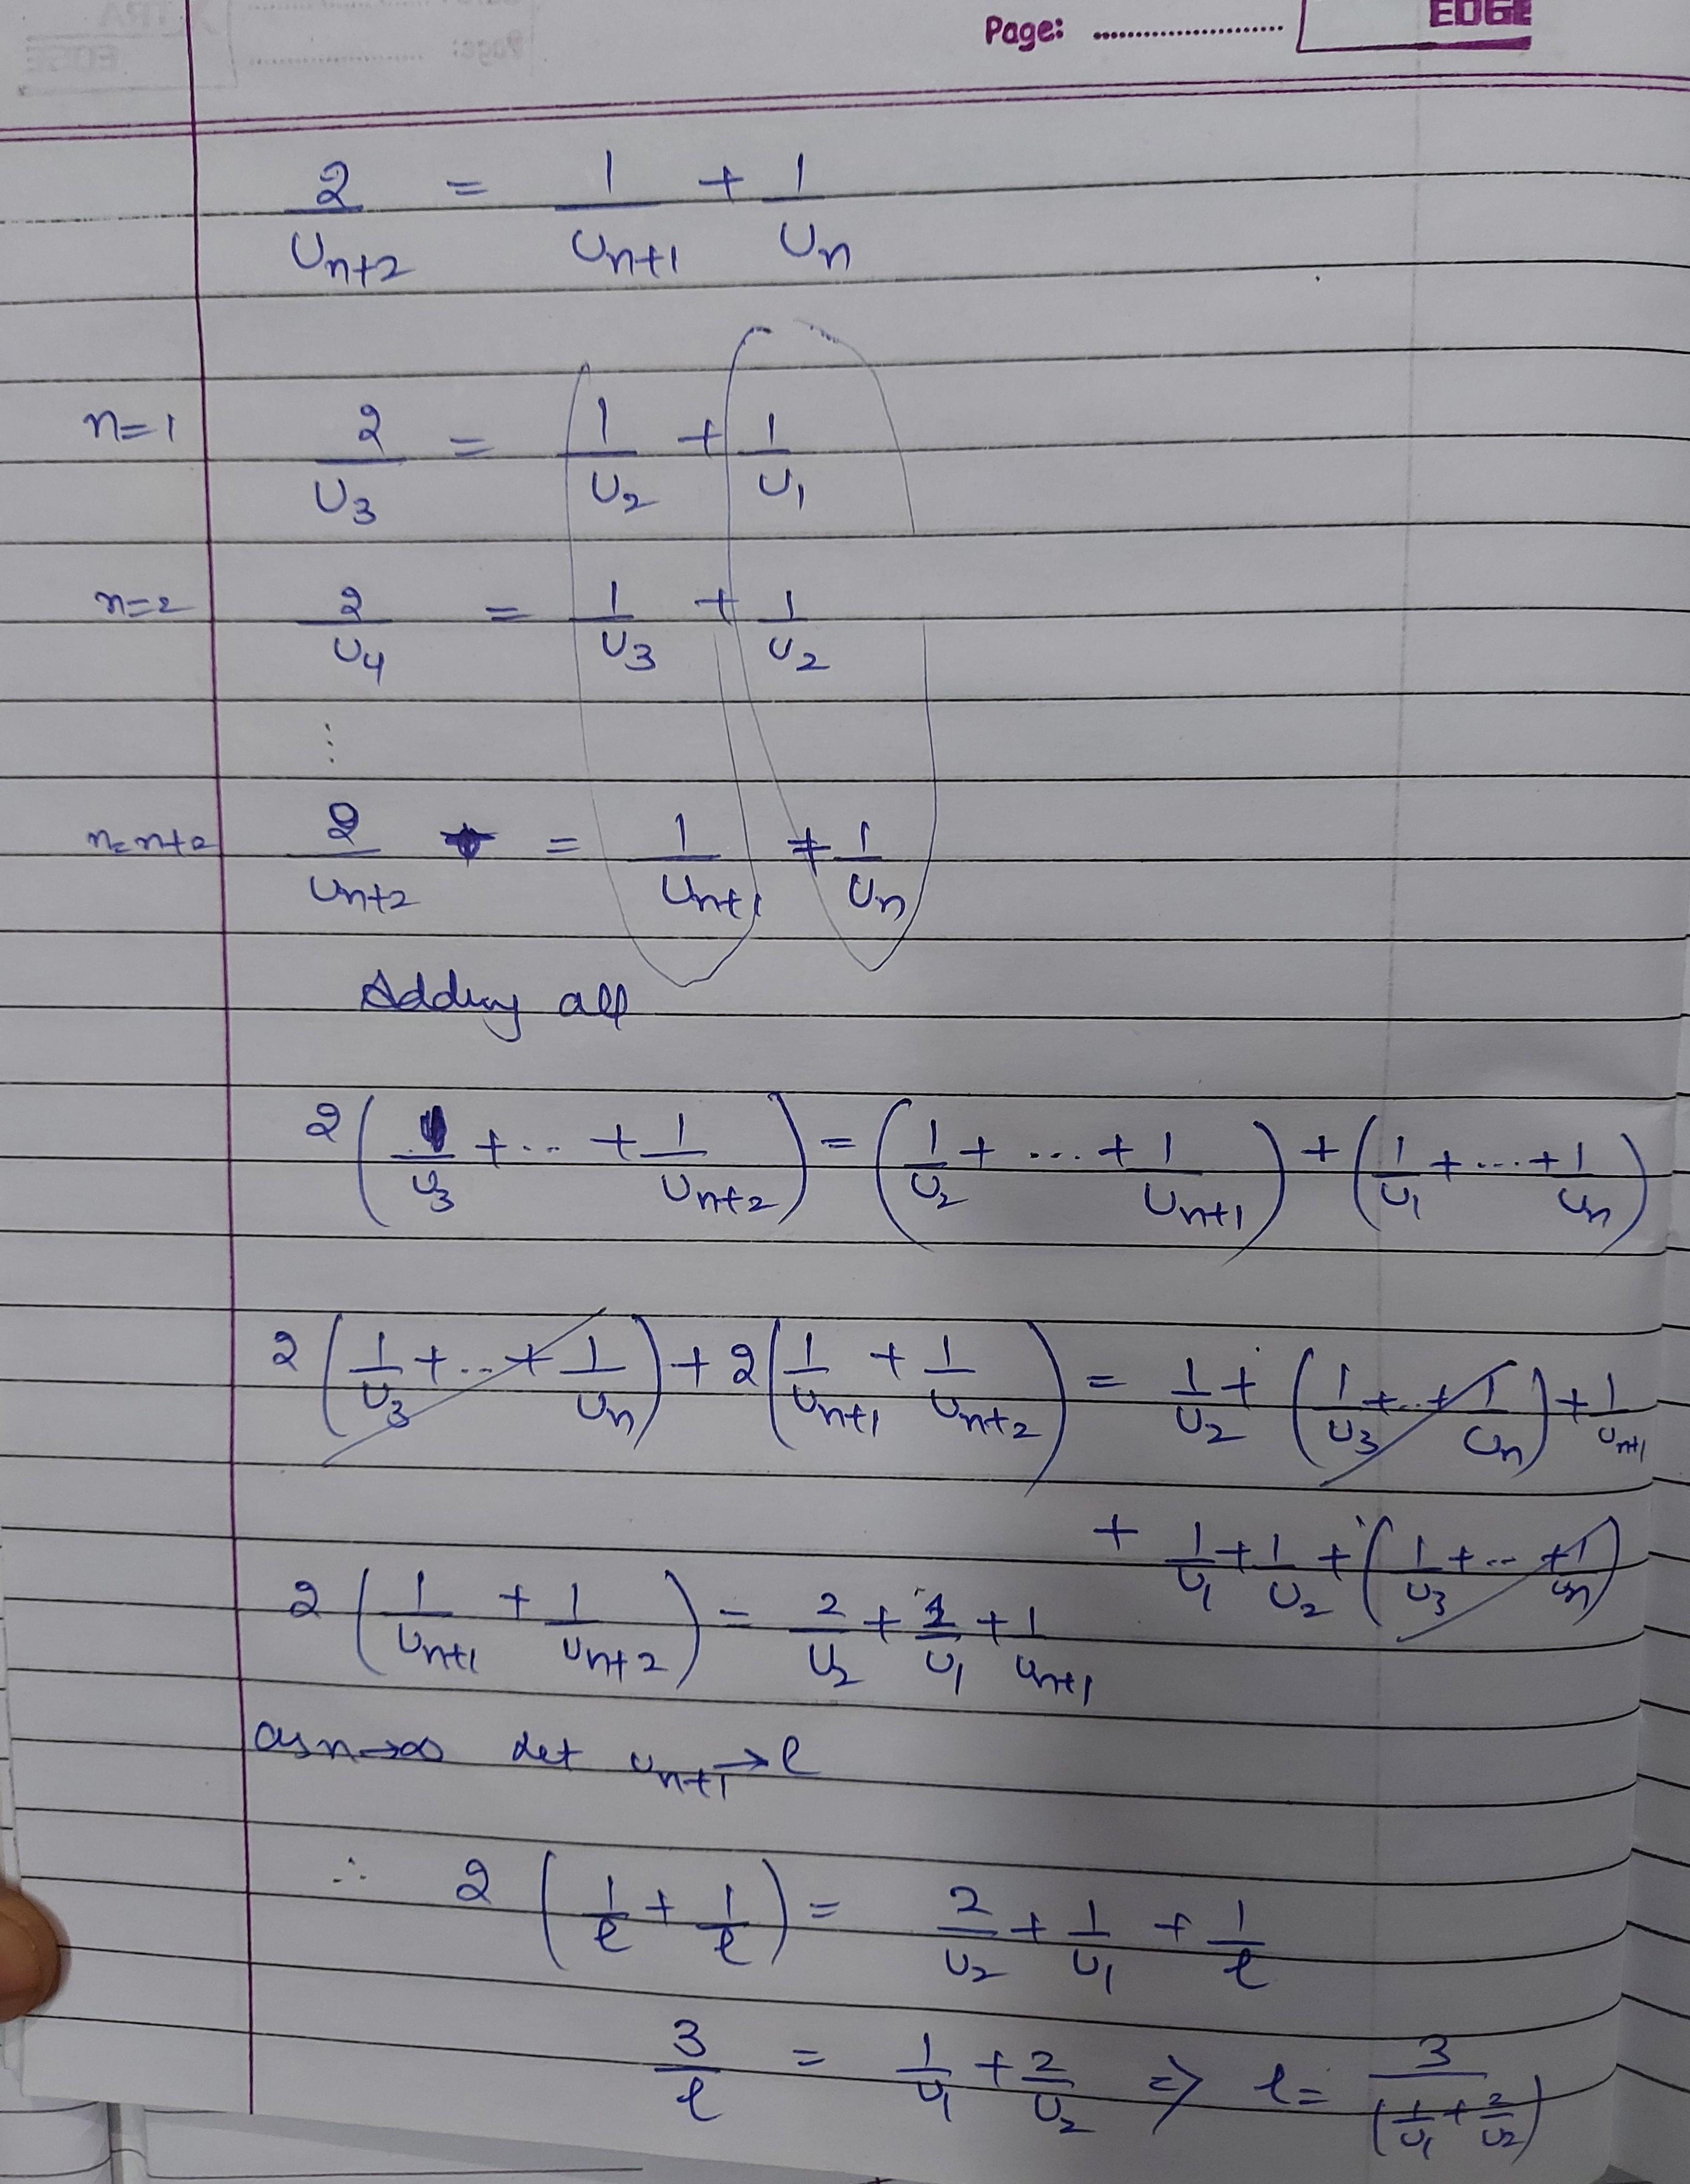 Page: ........................ EDGE
2/U_{n+2} = 1/U_{n+1} + 1/U_n
n=1 2/U_3 = 1/U_2 + 1/U_1
n=2 2/U_4 = 1/U_3 + 1/U_2
⋮
n=n+2 2/U_{n+2} = 1/U_{n+1} + 1/U_n
Adding all
2(1/U_3 + ... + 1/U_{n+2}) = (1/U_2 + ... + 1/U_{n+1}) + (1/U_1 + ... + 1/U_n)
2(1/U_3 + ... + 1/U_n) + 2(1/U_{n+1} + 1/U_{n+2}) = 1/U_2 + (1/U_3 + ... + 1/U_n) + 1/U_{n+1}
+ 1/U_1 + 1/U_2 + (1/U_3 + ... + 1/U_n)
2(1/U_{n+1} + 1/U_{n+2}) = 2/U_2 + 1/U_1 + 1/U_{n+1}
as n→∞ Let U_{n+1} → ℓ
∴ 2(1/ℓ + 1/ℓ) = 2/U_2 + 1/U_1 + 1/ℓ
3/ℓ = 1/U_1 + 2/U_2 ⇒ ℓ = 3/(1/U_1 + 2/U_2)